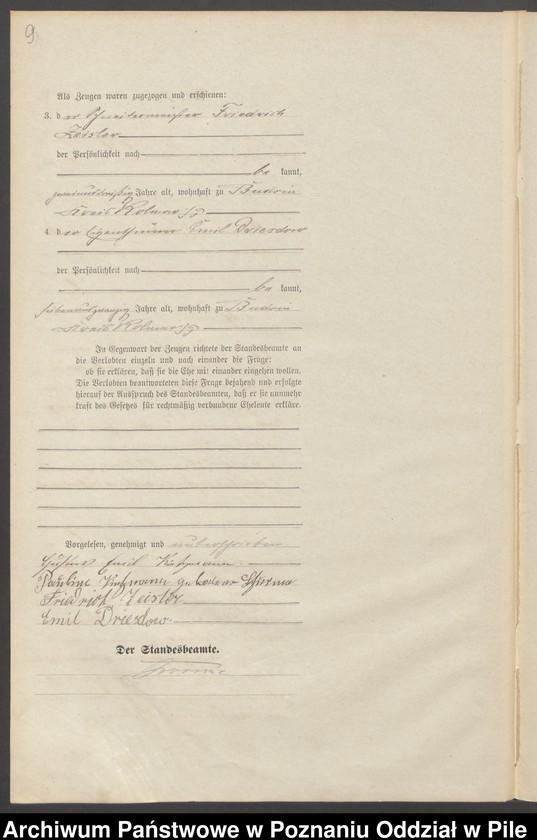 9
Als Zeugen waren zugezogen und erschienen:
3. der Schneidermeister Friedrich
Zeisler
der Persönlichkeit nach
be kannt,
zweiunddreißig Jahre alt, wohnhaft zu Budsin
Kreis Kolmar i/P
4. der Eigenthümer Emil Driesdow
der Persönlichkeit nach
be kannt,
siebenundzwanzig Jahre alt, wohnhaft zu Budsin
Kreis Kolmar i/P
In Gegenwart der Zeugen richtete der Standesbeamte an
die Verlobten einzeln und nach einander die Frage:
ob sie erklären, daß sie die Ehe mit einander eingehen wollen.
Die Verlobten beantworteten diese Frage bejahend und erfolgte
hierauf der Ausspruch des Standesbeamten, daß er sie nunmehr
kraft des Gesetzes für rechtmäßig verbundene Eheleute erkläre.
Vorgelesen, genehmigt und unterschrieben
Gustav Emil
Pauline geborene
Friedrich Zeisler
Emil Driesdow.
Der Standesbeamte.
Archiwum Państwowe w Poznaniu Oddział w Pile